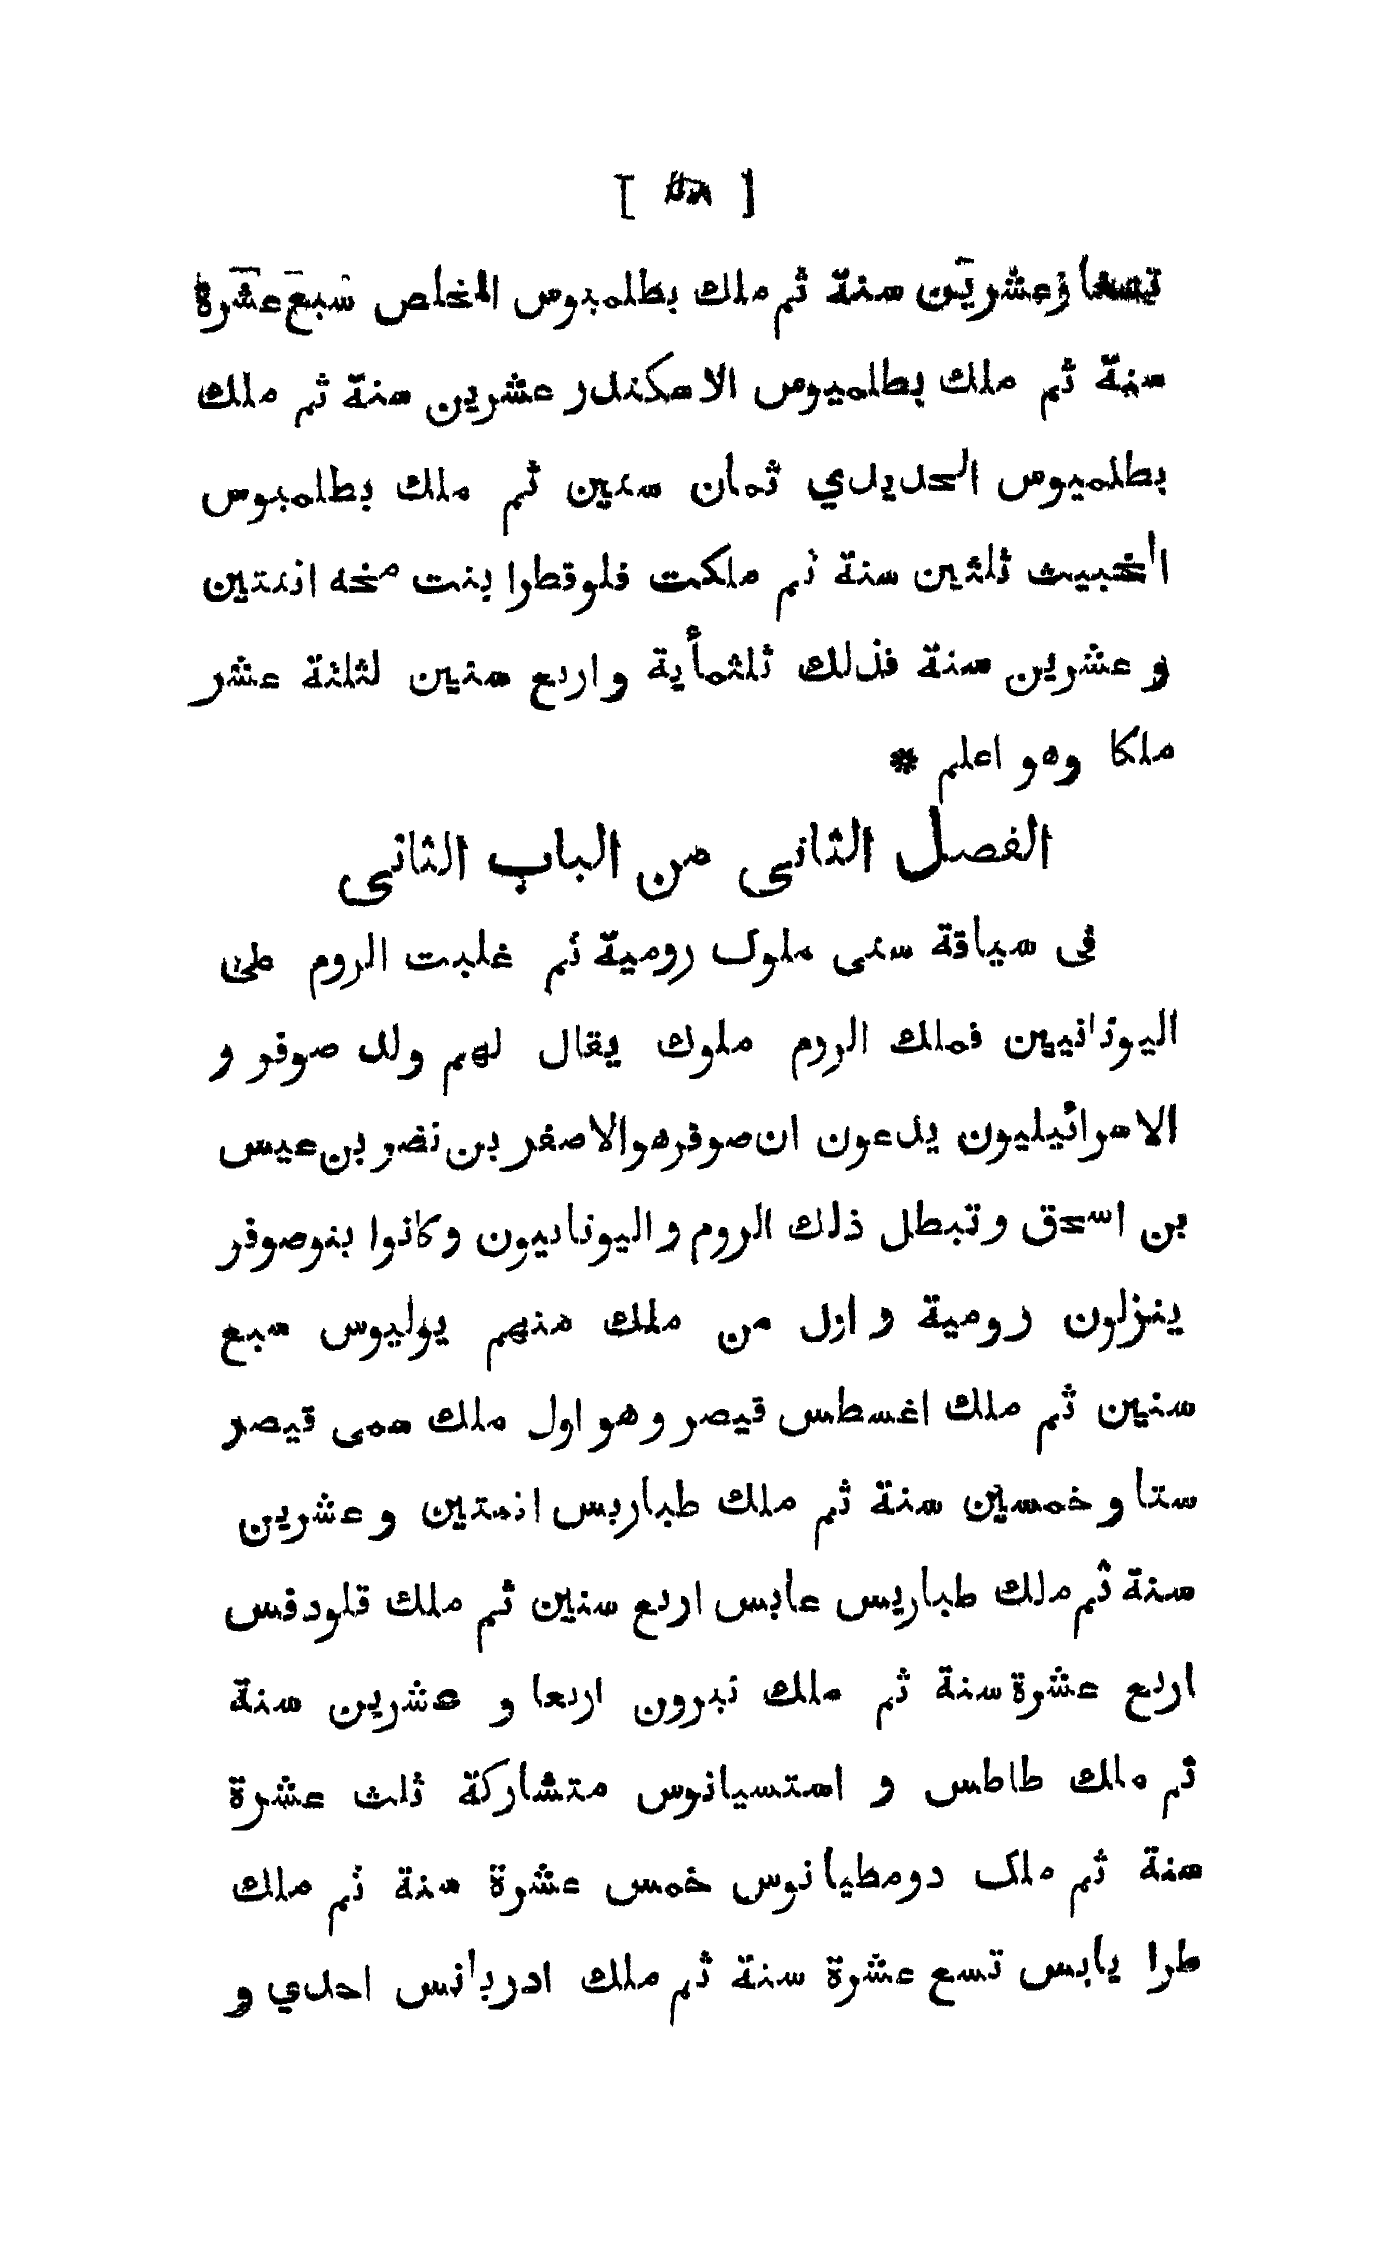 تسعا وعشرين سنة ثم ملك بطلميوس المخلص سبع عشرة
سنة ثم ملك بطلميوس الاسكندر عشرين سنة ثم ملك
بطلميوس الحديدي ثمان سنين ثم ملك بطلميوس
الخبيث ثلثين سنة ثم ملكت فلوقطرا بنت مخه اثنتين
و عشرين سنة فذلك ثلثمأية واربع سنين لثلثة عشر
ملكا وهو اعلم *
الفصل الثانى من الباب الثانى
فى سياقة سنى ملوك رومية ثم غلبت الروم على
اليونانيين فملك الروم ملوك يقال لهم ولد صوفر و
الاسرائيليون يدعون ان صوفر هو الاصفر بن نضر بن عيس
بن اسحق وتبطل ذلك الروم واليونانيون وكانوا بنو صوفر
ينزلون رومية و اول من ملك منهم يوليوس سبع
سنين ثم ملك اغسطس قيصر وهو اول ملك سمى قيصر
ستا وخمسين سنة ثم ملك طباريس اثنتين وعشرين
سنة ثم ملك طباريس عابس اربع سنين ثم ملك قلودفس
اربع عشرة سنة ثم ملك نبرون اربعا و عشرين سنة
ثم ملك طاطس و استسيانوس متشاركة ثلث عشرة
سنة ثم ملك دومطيانوس خمس عشرة سنة ثم ملك
طرا يابس تسع عشرة سنة ثم ملك ادريانس احدي و